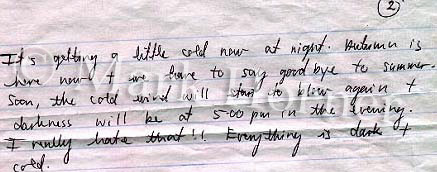 2
It's getting a little cold now at night. Autumn is
here now + we have to say goodbye to summer.
Soon, the cold wind will start to blow again +
darkness will be at 5-00 pm in the evening.
I really hate that!! Everything is dark +
cold.